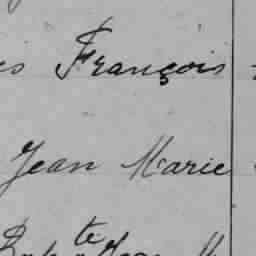 es François
Jean Marie